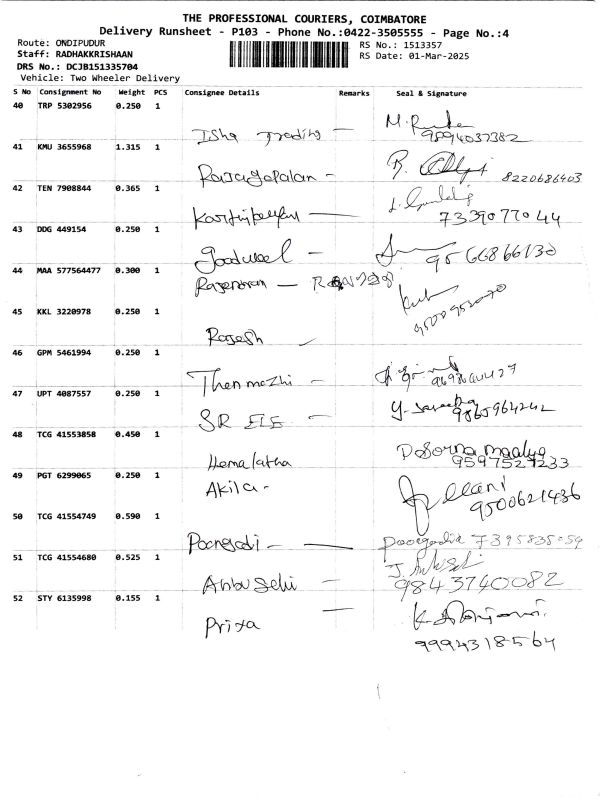 THE PROFESSIONAL COURIERS, COIMBATORE
Delivery Runsheet - P103 - Phone No.:0422-3505555 - Page No.:4
Route: ONDIPUDUR RS No.: 1513357
Staff: RADHAKKRISHAAN RS Date: 01-Mar-2025
DRS No.: DCJB151335704
Vehicle: Two Wheeler Delivery
S No Consignment No Weight PCS Consignee Details Remarks Seal & Signature
40 TRP 5302956 0.250 1
Isha Trading - M.
9894037382
41 KMU 3655968 1.315 1
Rajagopalan - R. 8220686403
42 TEN 7908844 0.365 1
7339077044
43 DDG 449154 0.250 1
Goodwel - 9566866130
44 MAA 577564477 0.300 1
Rajendran -
45 KKL 3220978 0.250 1
Rajesh
46 GPM 5461994 0.250 1
Thenmozhi -
47 UPT 4087557 0.250 1
SR ELE - 9865964242
48 TCG 41553858 0.450 1
Hemalatha
9597527233
49 PGT 6299065 0.250 1
Akila - 9500621436
50 TCG 41554749 0.590 1
Poongodi - 7395835059
51 TCG 41554680 0.525 1
Anbu Selvi - 9843740082
52 STY 6135998 0.155 1
Priya
9994318564